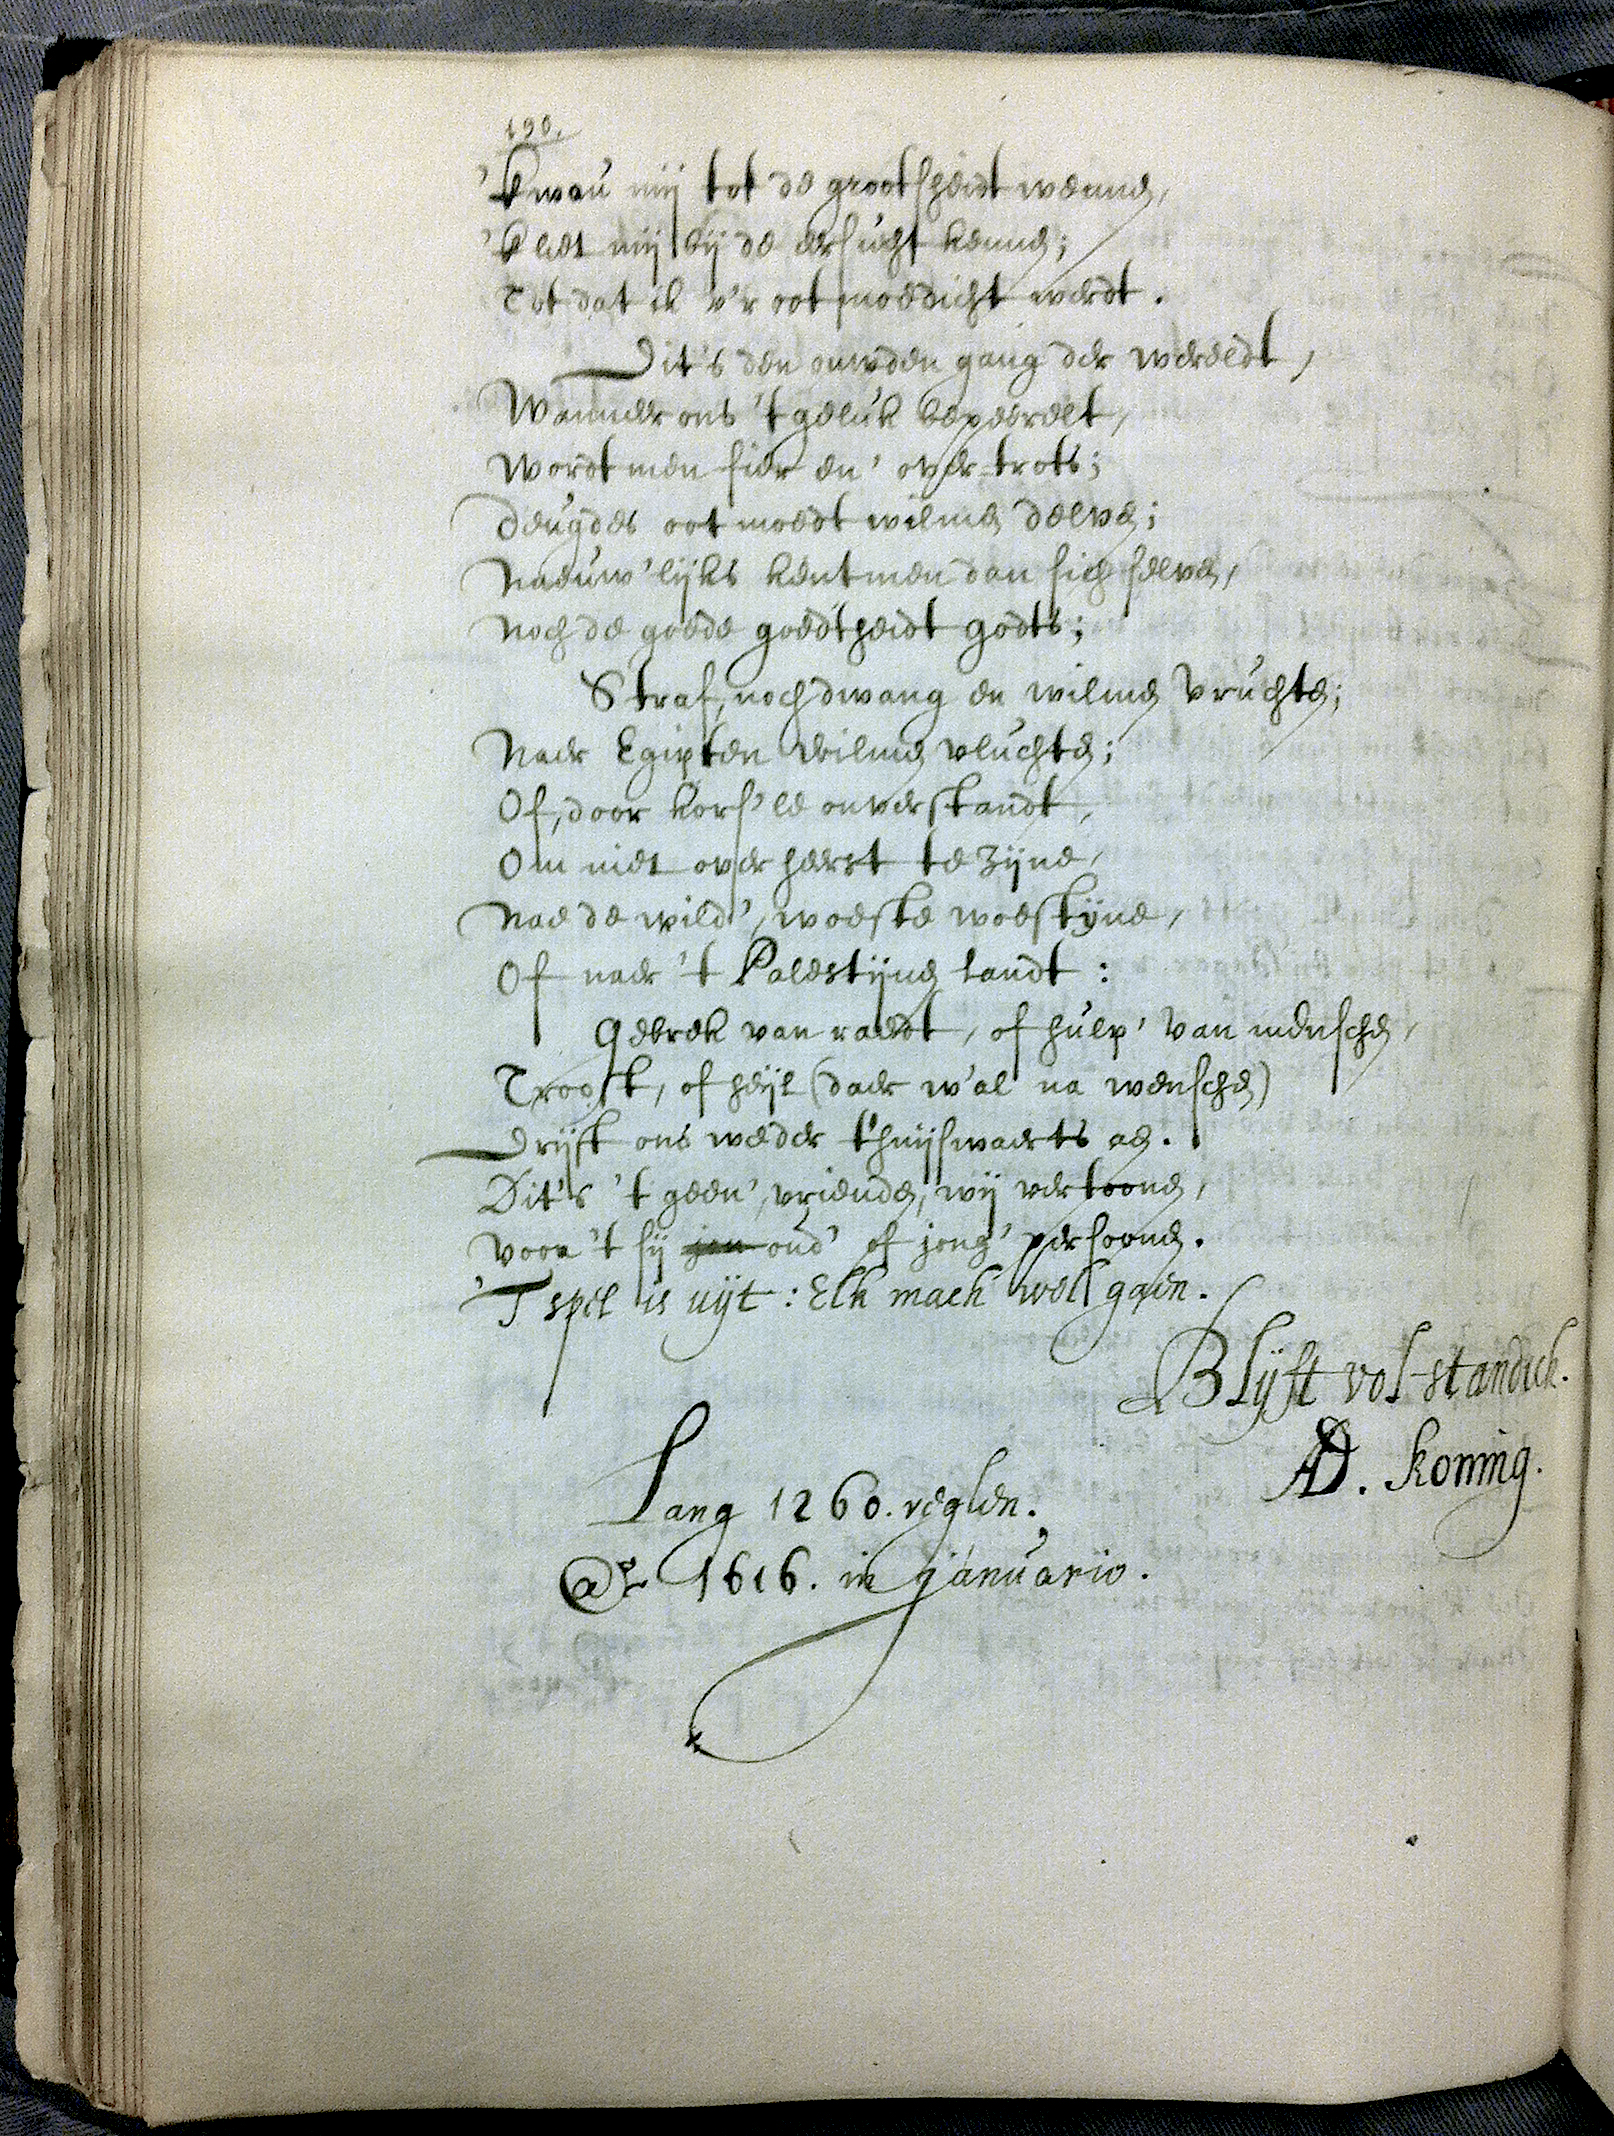 190.
'k wou mij tot de grootsheidt wennen,
'k liet mij bij de eersucht kennen;
Tot dat ik v'rootmoedicht werdt.
Dit's den ouwden gang der wereldt,
Wanneer ons 't geluk bepeerelt,
Wordt men fier en' over-trots;
Deugdes ootmoedt wilmen delven;
Naeuw'lijks kentmen dan sich selven,
Noch de goede goedtheidt godts;
Straf, noch dwang en wilmen vruchten;
Naer Egipten wilmen vluchten;
Of, door korf'le onverstandt,
Om niet overheerst te zijne,
Nae de wild', woeste woestijne,
Of naer 't Palestijnen landt:
Gebrek van raedt, of hulp' van menschen,
Troost, of heijl (daer w'al na wenschen)
Drijft ons weder t'huijswaerts aen.
Dit's 't geen', vrienden, wij vertoonen,
Voor 't sij oud' of jong' persoonen.
'T spel is uijt: Elk mach wel gaen.
Blijft vol-standich.
AD. Koning.
Lang 1260. reglen.
Ao. 1616. in januario.